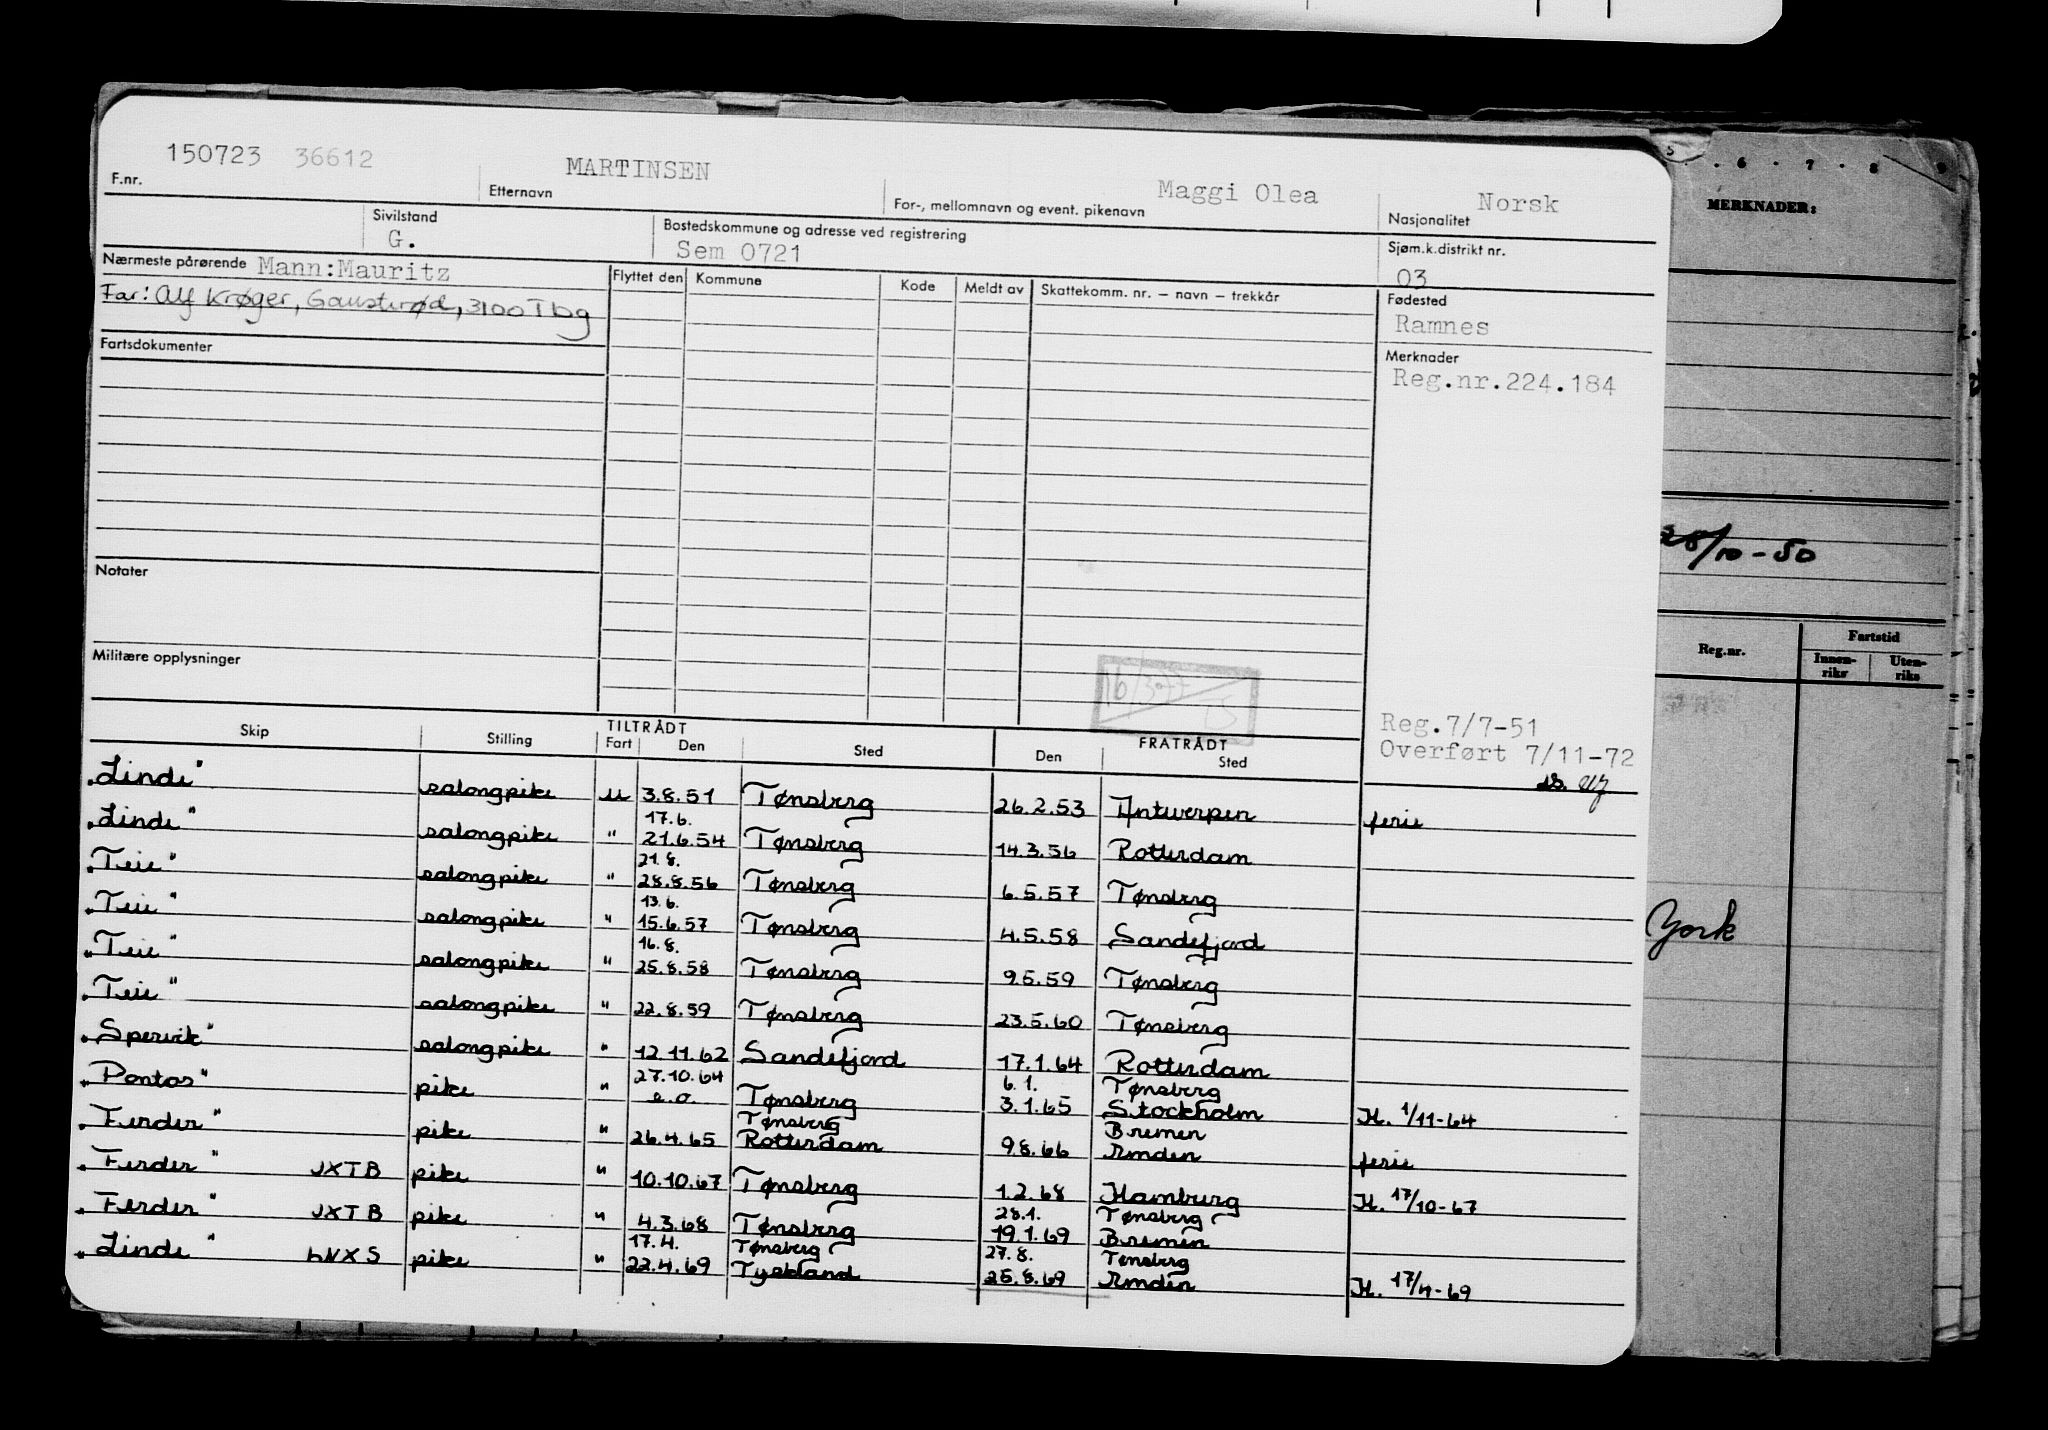 150723 36612 MARTINSEN Maggi Olea Norsk
F.nr. Etternavn For-, mellomnavn og event. pikenavn Nasjonalitet
Sivilstand Bostedskommune og adresse ved registrering Sjøm.k.distrikt nr.
G. Sem 0721 03
Nærmeste pårørende Mann:Mauritz Flyttet den Kommune Kode Meldt av Skattekomm. nr. – navn – trekkår Fødested
Far: Alf Krøger, 3100 Tbg Ramnes
Fartsdokumenter Merknader
Reg.nr.224.184
Notater
Militære opplysninger
16/3-77
Reg.7/7-51
Overført 7/11-72
Skip Stilling TILTRÅDT Fart Den Sted FRATRÅDT Den Sted
"Linde" salongpike u 3.8.51 Tønsberg 26.2.53 Antwerpen ferie
17.6.
"Linde" salongpike " 21.6.54 Tønsberg 14.3.56 Rotterdam
21.8.
"Teie" salongpike " 28.8.56 Tønsberg 6.5.57 Tønsberg
13.6.
"Teie" salongpike " 15.6.57 Tønsberg 4.5.58 Sandefjord
16.8.
"Teie" salongpike " 25.8.58 Tønsberg 9.5.59 Tønsberg
"Teie" salongpike " 22.8.59 Tønsberg 23.5.60 Tønsberg
"Spervik" salongpike " 12.11.62 Sandefjord 17.1.64 Rotterdam
27.10.64 6.1. Tønsberg
"Pontos" pike " s.d. Tønsberg 3.1.65 Stockholm H. 1/11-64
Tønsberg Bremen
"Ferder" pike " 26.4.65 Rotterdam 9.8.66 Emden ferie
"Ferder" JXTB pike " 10.10.67 Tønsberg 1.2.68 Hamburg H. 17/10-67
28.1. Tønsberg
"Ferder" JXTB pike " 4.3.68 Tønsberg 19.1.69 Bremen
17.4. Tønsberg 27.8. Tønsberg
"Linde" LNXS pike " 22.4.69 Tyskland 25.8.69 Emden H. 17/4-69
5 . . 6 . 7 . 8 9
MERKNADER:
28/10-50
Reg.nr. Fartstid
Innen-riks Uten-riks
York